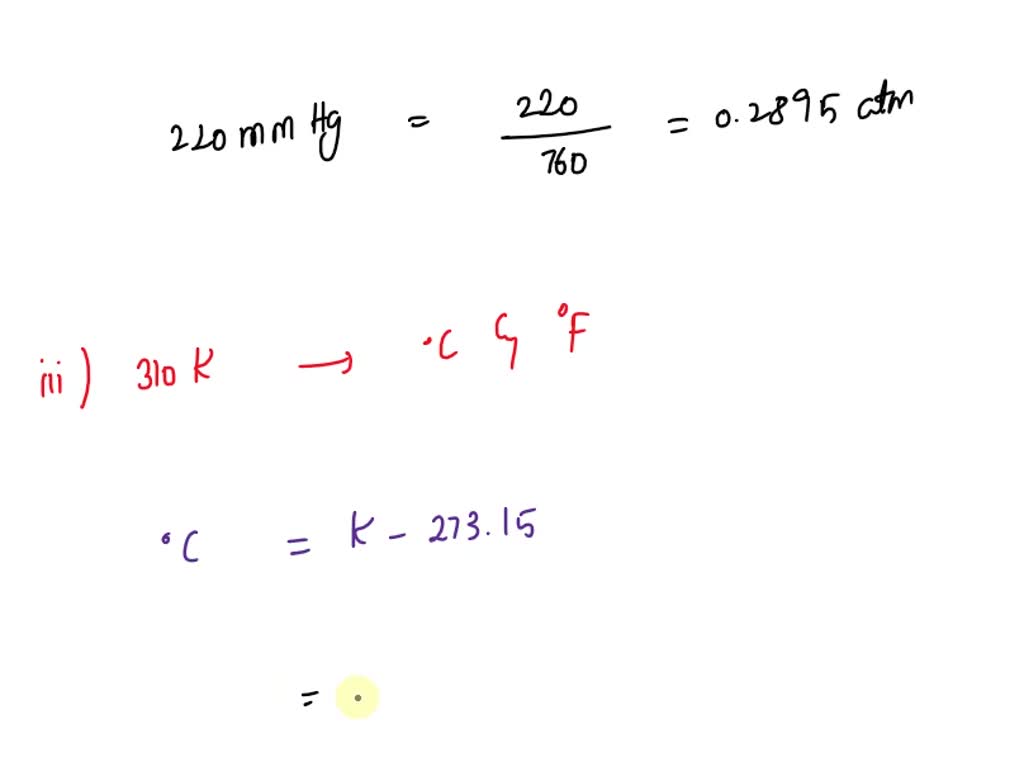 220 mm Hg = 220/760 = 0.2895 atm
iii) 310 K → °C & °F
°C = K - 273.15
=